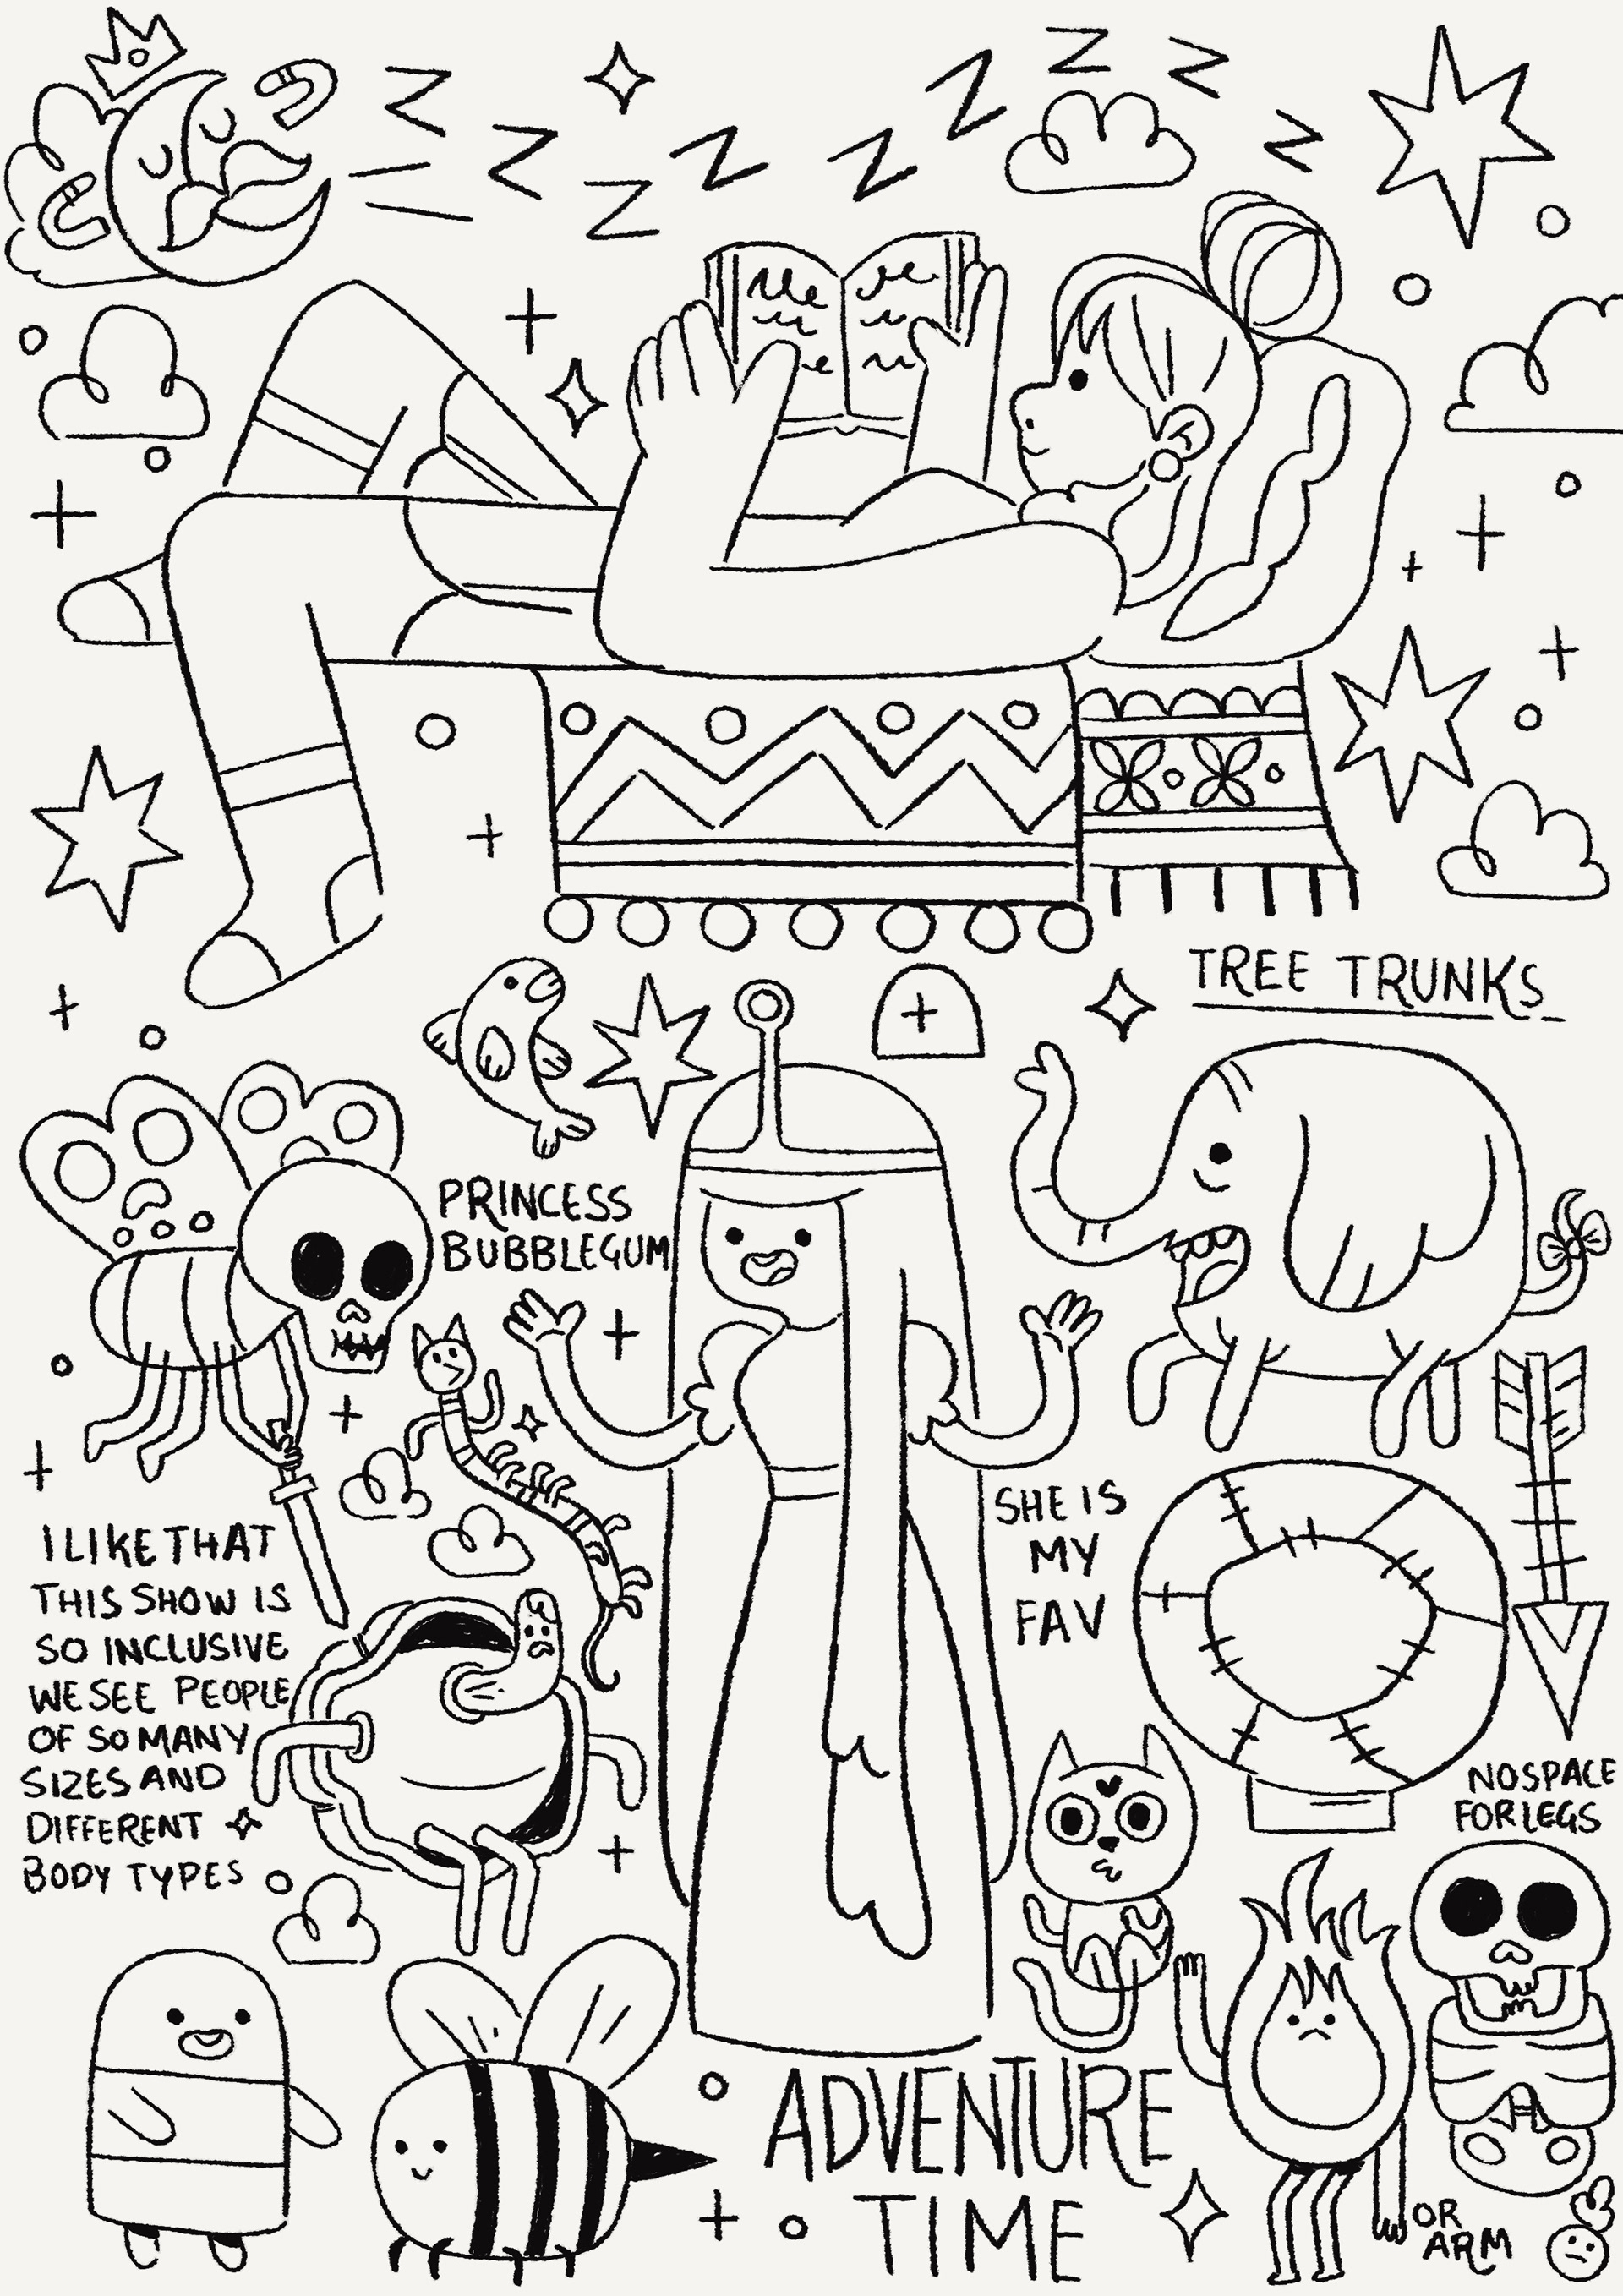 Z Z Z Z Z Z Z Z Z
TREE TRUNKS
PRINCESS
BUBBLEGUM
I LIKE THAT
THIS SHOW IS
SO INCLUSIVE
WE SEE PEOPLE
OF SO MANY
SIZES AND
DIFFERENT
BODY TYPES
SHE IS
MY
FAV
NO SPACE
FOR LEGS
OR
ARM
ADVENTURE
TIME